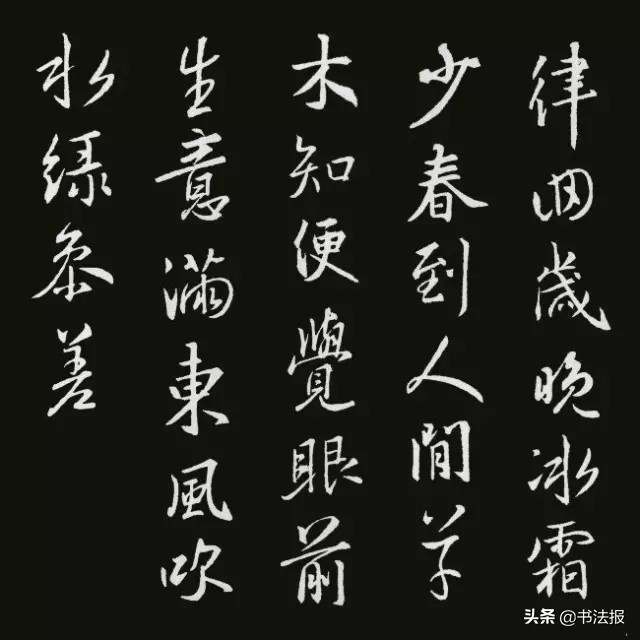 律回歲晚冰霜
少春到人間草
木知便覺眼前
生意滿東風吹
水緑参差
头条 @书法报